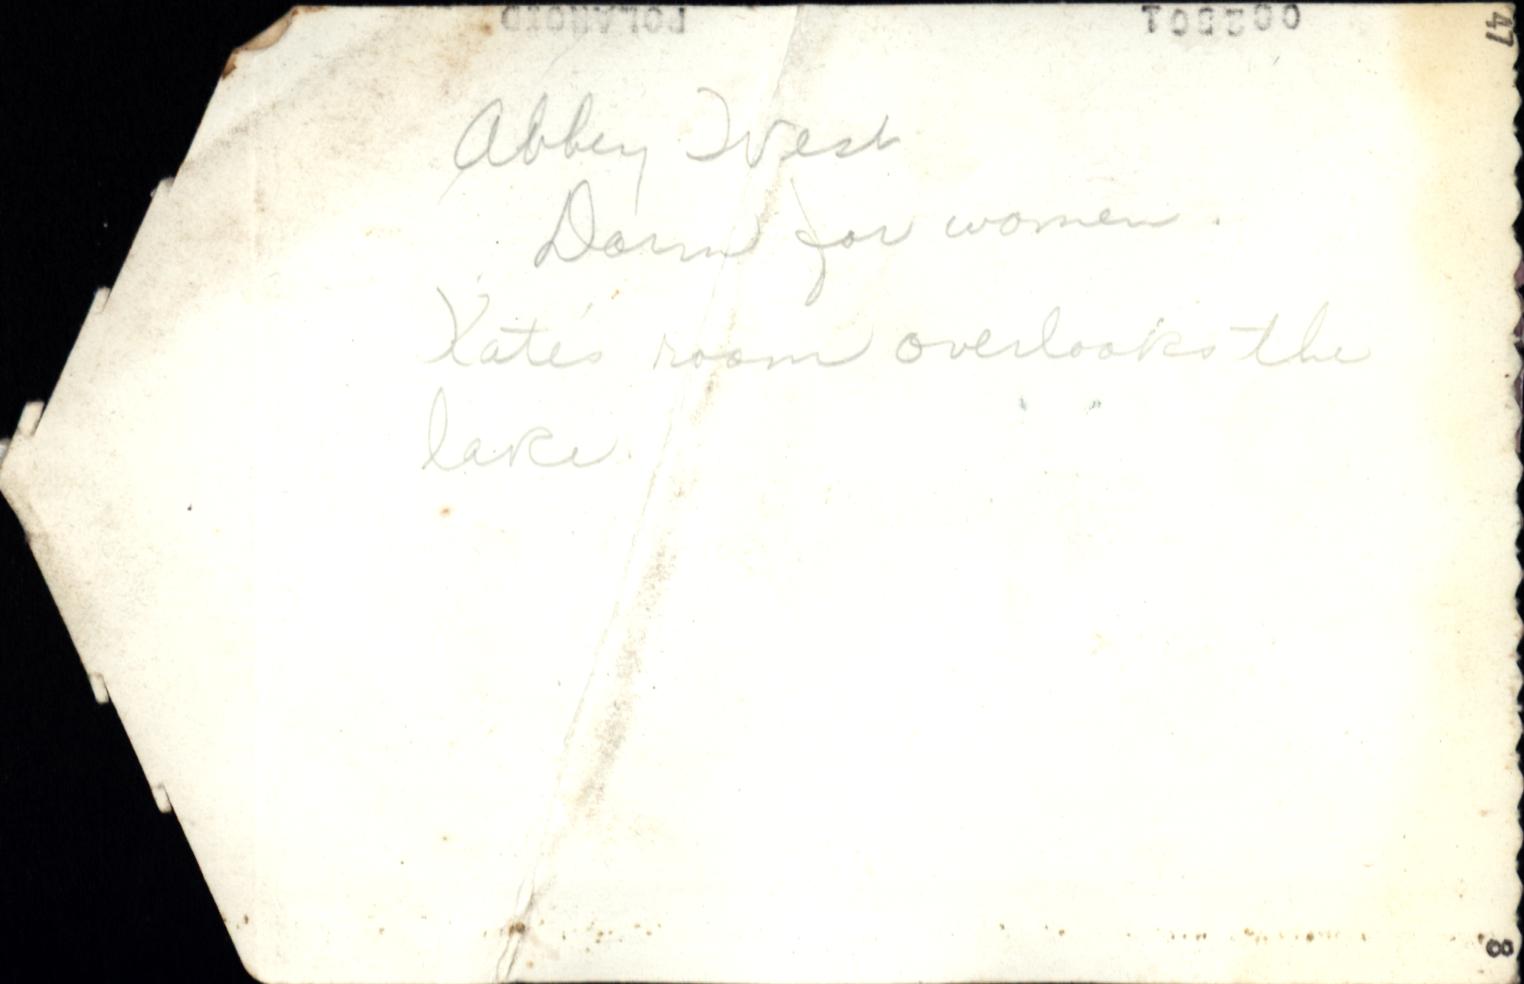 POLAROID 002501
47
Abbey West
Dorm for women.
Kate's room overlooks the
lake.
8